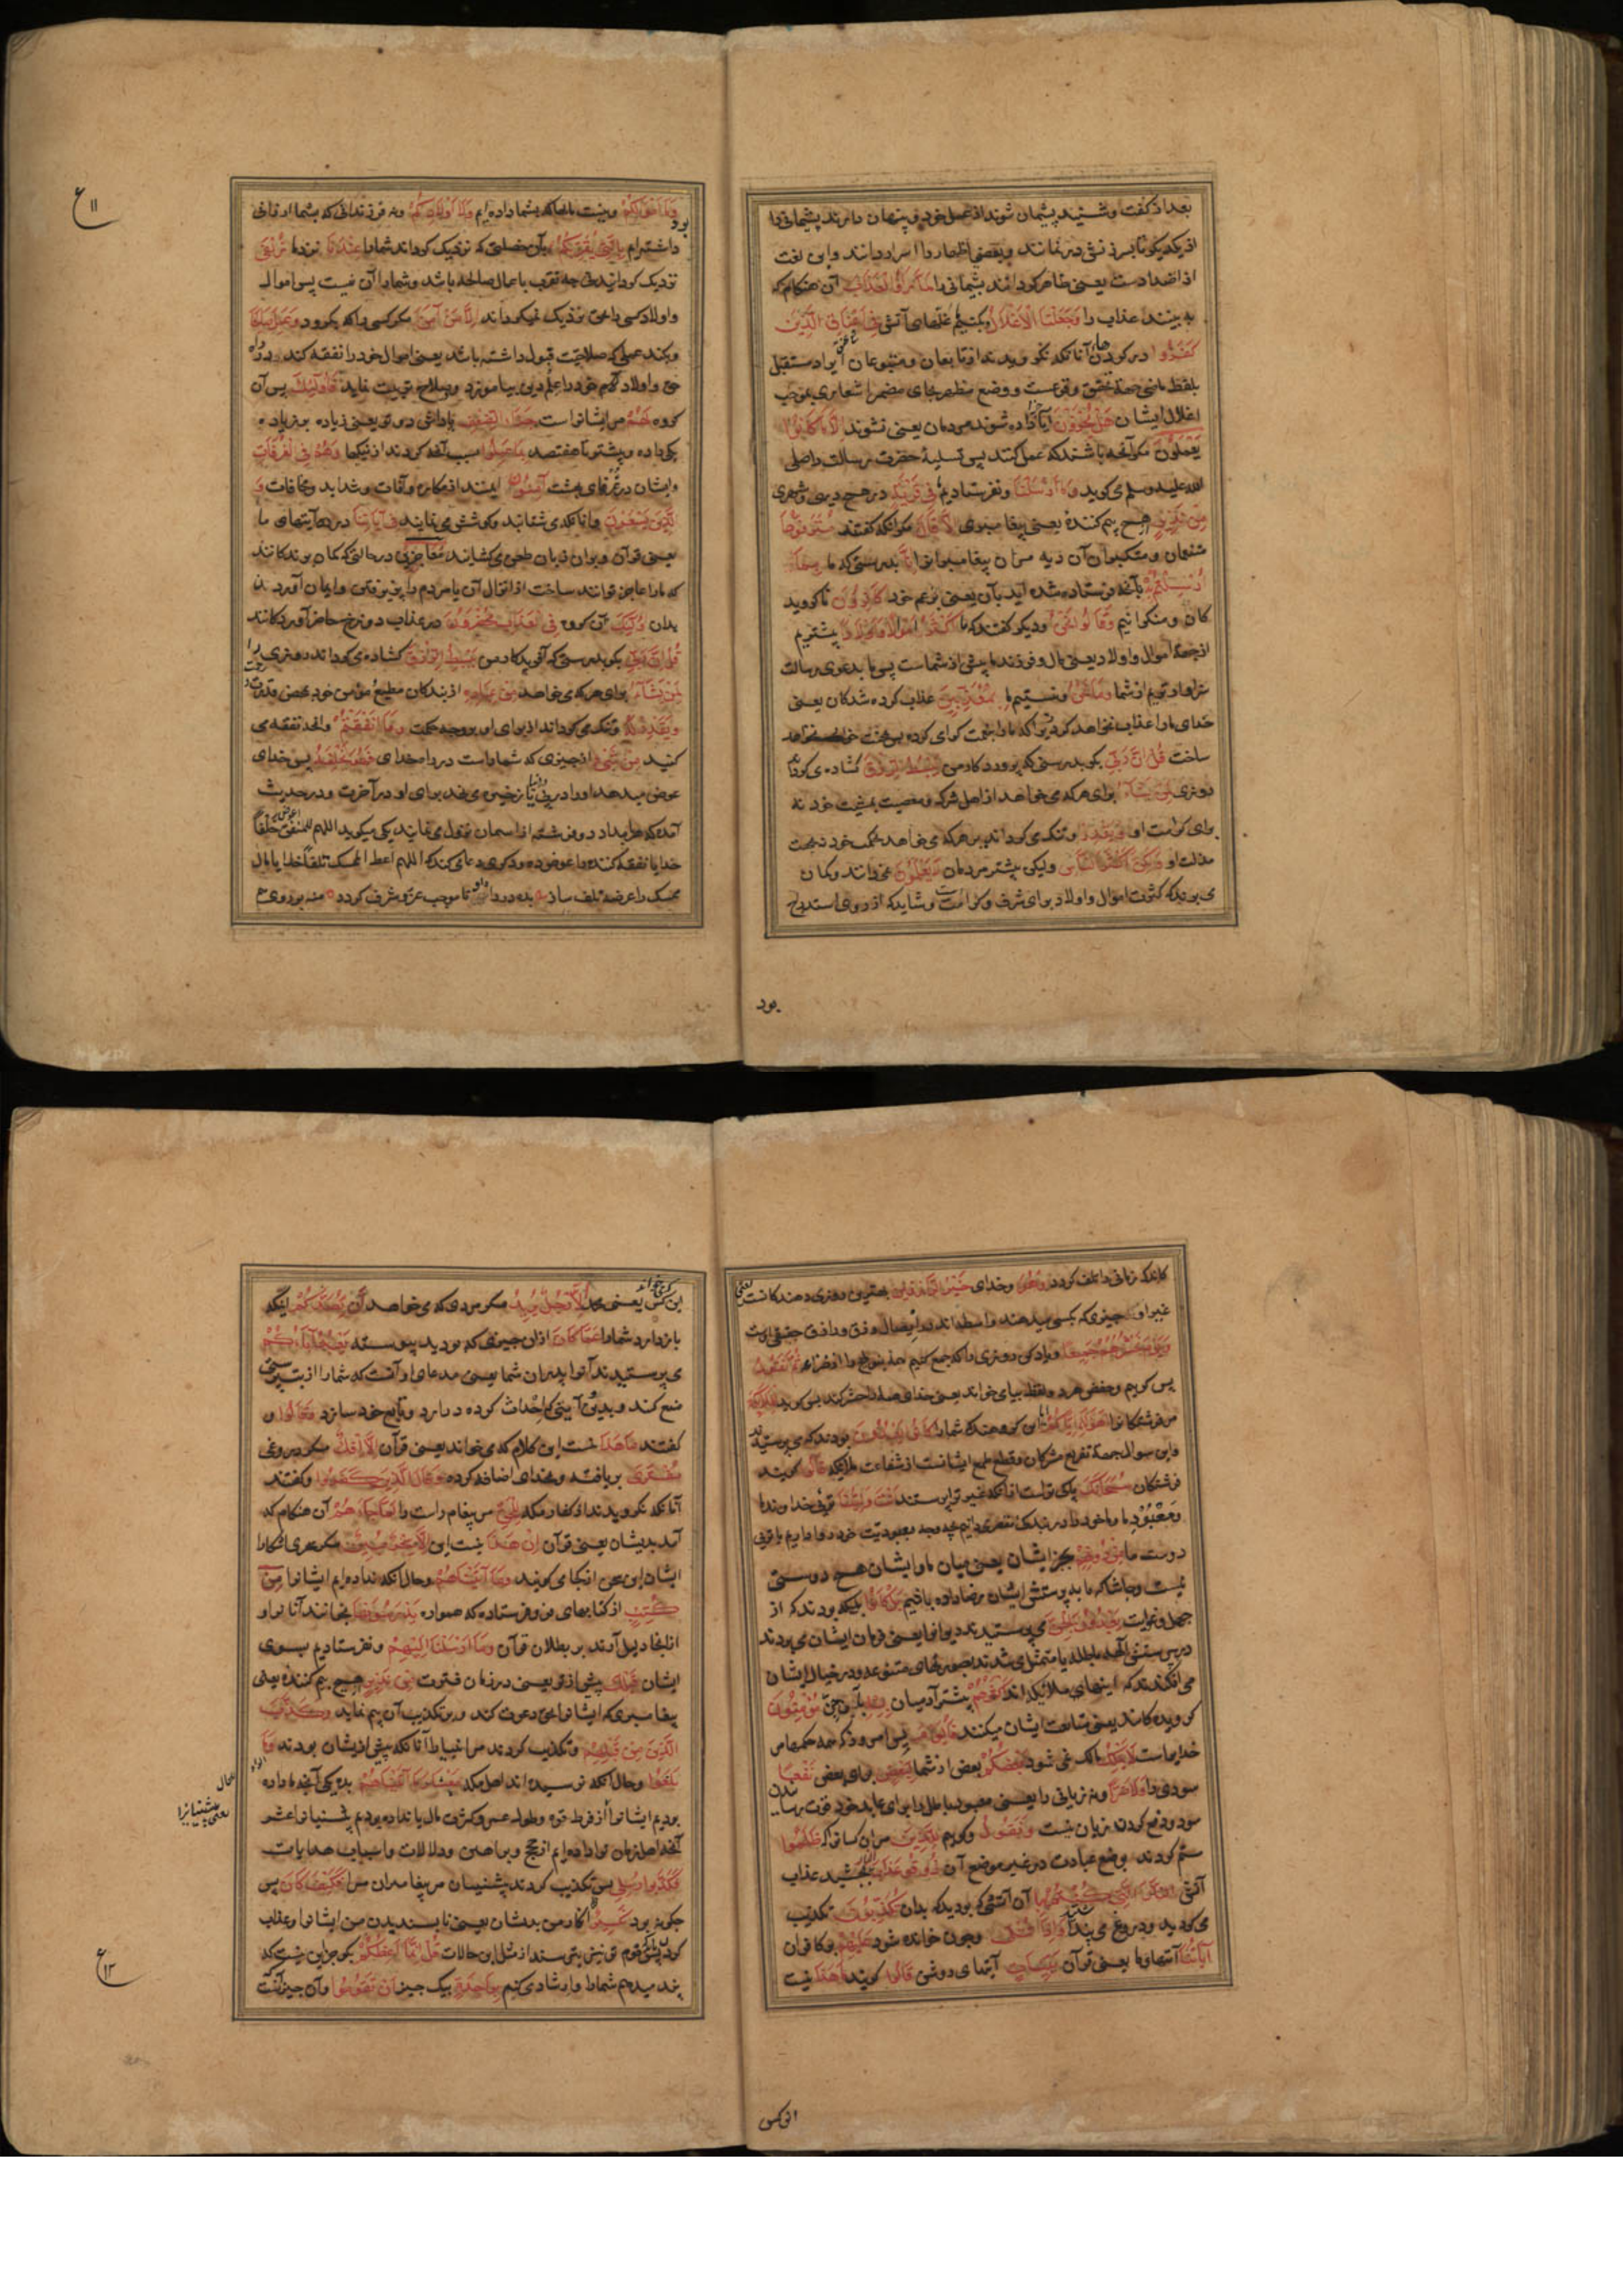 بعد از گفت و شنید پشیمان شوند از عمل خود و پنهان دارند پشیمانی را
از یکدیگر تا بسرزنش درنمانند و بعضی اظهار را اسرار دانند و این لغت
از اضدادست یعنی ظاهر گردانند پشیمانی را لَمَّا رَأَوُا الْعَذَابَ آن هنگام که
به بینند عذاب را وَجَعَلْنَا الْأَغْلَالَ و بکنیم غلهای آتشی فِي أَعْنَاقِ الَّذِينَ
كَفَرُوا در گردنهای آنانکه نگرویدند از تابعان و متبوعان ایراد مستقبل
بلفظ ماضی جهة تحقق وقوعست و وضع مظهر بجای مضمر اشعاری بموجب
اغلال ایشان هَلْ يُجْزَوْنَ آیا جزا داده شوند مردمان یعنی نشوند إِلَّا مَا كَانُوا
يَعْمَلُونَ مگر آنچه باشند که عمل کنند پس تسلیهٔ حضرت رسالت را صلی
الله علیه وسلم می گوید وَمَا أَرْسَلْنَا و نفرستادیم فِي قَرْيَةٍ در هیچ دیهی و شهری
مِنْ نَذِيرٍ هیچ بیم کنندهٔ یعنی پیغامبری إِلَّا قَالَ مگر آنکه گفتند مُتْرَفُوهَا
متنعمان و متکبران آن دیه مران پیغامبرانرا إِنَّا بدرستی که ما بِمَا
أُرْسِلْتُمْ بِهِ بآنچه فرستاده شده اید بآن یعنی بزعم خود كَافِرُونَ ناگروید
گان و منکرانیم وَقَالُوا نَحْنُ و دیگر گفتند که ما أَكْثَرُ أَمْوَالًا وَأَوْلَادًا بیشتریم
از جهة اموال و اولاد یعنی مال و فرزند ما بیش از شماست پس ما بدعوی رسالت
سزاوارتریم از شما وَمَا نَحْنُ و نیستیم ما بِمُعَذَّبِينَ عذاب کرده شدگان یعنی
خدای ما را عذاب نخواهد کرد
ساخت قُلْ إِنَّ رَبِّي بگو بدرستی که پروردگار من يَبْسُطُ الرِّزْقَ گشاده می گرداند
روزی لِمَنْ يَشَاءُ برای هرکه می خواهد از اهل شرک و معصیت بمشیت خود نه
برای کرامت او وَيَقْدِرُ و تنگ می گرداند بر هرکه می خواهد بحکم خود نه بجهت
مذلت او وَلَكِنَّ أَكْثَرَ النَّاسِ ولیکن بیشتر مردمان لَا يَعْلَمُونَ نمی دانند و گمان
می برند که کثرت اموال و اولاد برای شرف و کرامت است و شاید که از روی استدراج
بود
ع ۱۱
بود
وَمَا أَمْوَالُكُمْ و نیست مالها که بشما داده ایم وَلَا أَوْلَادُكُمْ و نه فرزندانی که بشما ارزانی
داشته ایم بِالَّتِي تُقَرِّبُكُمْ بآن خصلتی که نزدیک گرداند شما را عِنْدَنَا نزد ما زُلْفَى
نزدیک گردانیدنی چه تقرب باعمال صالحه باشد و شما را آن نیست پس اموال
و اولاد کسی را بحق نزدیک نمیگرداند إِلَّا مَنْ آمَنَ مگر کسی را که بگرود وَعَمِلَ صَالِحًا
و بکند عملی که صلاحیت قبول داشته باشد یعنی اموال خود را نفقه کند در راه
حق و اولاد خود را علم دین بیاموزد و بصلاح تربیت نماید فَأُولَئِكَ پس آن
گروه لَهُمْ مر ایشانراست جَزَاءُ الضِّعْفِ پاداش دو تو یعنی زیاده بر زیاده
یکی را ده و بیشتر تا هفتصد بِمَا عَمِلُوا بسبب آنچه کردند از نیکیها وَهُمْ فِي الْغُرُفَاتِ
و ایشان در غرفهای بهشت آمِنُونَ ایمنند از مکاره و آفات و شداید و مخافات وَ
الَّذِينَ يَسْعَوْنَ و آنانکه می شتابند و کوشش می نمایند فِي آيَاتِنَا در آیتهای ما
یعنی قرآن و بران زبان طعن می گشایند مُعَاجِزِينَ در حالتی که گمان برندگانند
که ما را عاجز توانند ساخت از انزال آن یا مردم را از پذیرفتن و ایمان آوردن
بدان أُولَئِكَ آن گروه فِي الْعَذَابِ مُحْضَرُونَ در عذاب دوزخ حاضر آوردگانند
قُلْ إِنَّ رَبِّي بگو بدرستی که آفریدگار من يَبْسُطُ الرِّزْقَ گشاده می گرداند روزی را
لِمَنْ يَشَاءُ برای هرکه می خواهد مِنْ عِبَادِهِ از بندگان مطیع مؤمن خود بمحض قدرت
وَيَقْدِرُ لَهُ و تنگ می گرداند از برای او بر وجه حکمت وَمَا أَنْفَقْتُمْ و آنچه نفقه می
کنید مِنْ شَيْءٍ از چیزی که شما راست در راه خدای فَهُوَ يُخْلِفُهُ پس خدای
عوض میدهد او را در دنیا یا ذخیره می نهد برای او در آخرت و در حدیث
آمده که هر بامداد دو فرشته از اسمان نزول می نمایند یکی میگوید اللهم اعط المنفق خلفا
خدایا نفقه کننده را عوض ده و دیگری دعا می کند که اللهم اعط الممسک تلفا خدایا مال
ممسک را عرضه تلف ساز
کاندکه زمانی را تلف گردد وَهُوَ و خدای خَيْرُ الرَّازِقِينَ بهترین روزی دهندگانست یعنی
غیر او هر چیزی که بکسی میدهند واسطه اند در ایصال رزق و رازق حقیقی اوست
وَيَوْمَ يَحْشُرُهُمْ جَمِيعًا و یاد کن روزی را که جمع کنیم ثُمَّ نَقُولُ
پس گوییم و حفص هر دو لفظ بیا می خواند یعنی خدای همه را حشر کند پس گوید لِلْمَلَائِكَةِ
مر فرشتگانرا أَهَؤُلَاءِ إِيَّاكُمْ آیا این گروهند که شما را كَانُوا يَعْبُدُونَ بودند که می پرستیدند
و این سوال جهة تقریع مشرکان و قطع طمع ایشانست از شفاعت ملائکه قَالُوا گویند
فرشتگان سُبْحَانَكَ پاکی تراست از آنکه غیر ترا پرستند أَنْتَ وَلِيُّنَا توئی خداوند ما
و معبود ما
دوست ما مِنْ دُونِهِمْ بجز ایشان یعنی میان ما و ایشان هیچ دوستی
نیست و حاشا که ما بپرستش ایشان رضا داده باشیم بَلْ كَانُوا بلکه بودند که از
جهل و غایت يَعْبُدُونَ الْجِنَّ می پرستیدند دیوانرا یعنی فرمان ایشان می بردند
در پرستش آلهه باطله یا متمثل می شدند بصورتهای متنوعه و در خیال ایشان
می افکندند که اینهای ملائکه اند أَكْثَرُهُمْ بیشتر آدمیان بِهِمْ بآن جن مُؤْمِنُونَ
گرویده گانند یعنی متابعت ایشان میکنند فَالْيَوْمَ پس امروز که همه حکمها مر
خدایراست لَا يَمْلِكُ مالک نمی شود بَعْضُكُمْ بعض از شما لِبَعْضٍ برای بعض نَفْعًا
سودی را وَلَا ضَرًّا و نه زیانی را یعنی معبود باطل را برای عابد خود قوت رسانیدن
سود و دفع کردن زیان نیست وَنَقُولُ و گوییم لِلَّذِينَ مران کسانرا که ظَلَمُوا
ستم کردند بوضع عبادت در غیر موضع آن ذُوقُوا عَذَابَ بچشید عذاب
آتش النَّارِ الَّتِي كُنْتُمْ بِهَا آن آتشی که بودید که بدان تُكَذِّبُونَ تکذیب
می کردید و دروغ می پنداشتید وَإِذَا تُتْلَى و چون خوانده شود عَلَيْهِمْ بر کافران
آيَاتُنَا آیتهای ما یعنی قرآن بَيِّنَاتٍ آیتهای روشن قَالُوا گویند مَا هَذَا نیست
این کس
این کس یعنی محمد إِلَّا رَجُلٌ يُرِيدُ مگر مردی که می خواهد أَنْ يَصُدَّكُمْ اینکه
بازدارد شما را عَمَّا كَانَ از آن چیزی که بودید پیوسته يَعْبُدُ آبَاؤُكُمْ
می پرستیدند آنرا پدران شما یعنی مدعای او آنست که شما را از بت پرستی
منع کند و بدین آیینی که احداث کرده درآرد و تابع خود سازد وَقَالُوا و
گفتند مَا هَذَا نیست این کلام که می خواند یعنی قرآن إِلَّا إِفْكٌ مگر دروغی
مُفْتَرًى بربافته و بخدای اضافه کرده وَقَالَ الَّذِينَ كَفَرُوا و گفتند
آنانکه نگرویدند از کفار مکه لِلْحَقِّ مر پیغام راست را لَمَّا جَاءَهُمْ آن هنگام که
آمد بدیشان یعنی قرآن إِنْ هَذَا نیست این إِلَّا سِحْرٌ مُبِينٌ مگر سحری اشکارا
ایشان این سخن از کجا می گویند وَمَا آتَيْنَاهُمْ و حال آنکه نداده ایم ایشانرا مِنْ
كُتُبٍ از کتابهای من و فرستاده که همواره يَدْرُسُونَهَا بخوانند آنانرا و
از آنجا دلیل آرند بر بطلان قرآن وَمَا أَرْسَلْنَا إِلَيْهِمْ و نفرستادیم بسوی
ایشان قَبْلَكَ پیش از تو یعنی در زمان فترت مِنْ نَذِيرٍ هیچ بیم کنندهٔ یعنی
پیغامبری که ایشانرا بحق دعوت کند و بر تکذیب آن بیم نماید وَكَذَّبَ
الَّذِينَ مِنْ قَبْلِهِمْ و تکذیب کردند مر انبیا را آنانکه پیش از ایشان بودند وَمَا
بَلَغُوا و حال آنکه نرسیده اند اهل مکه مِعْشَارَ مَا آتَيْنَاهُمْ بده یکی آنچه ما داده
بودیم ایشانرا از فرط قوه و طول عمر و کثرت مال یا نداده بودیم پیشینیانرا عشر
آنچه اهل زمان ترا داده ایم از حجج و براهین و دلالات و اسباب هدایات
فَكَذَّبُوا رُسُلِي پس تکذیب کردند پیشینیان مر پیغامبران مرا فَكَيْفَ كَانَ پس
چگونه بود نَكِيرِ انکار من بدیشان یعنی ناپسندیدن من ایشانرا و عذاب
کردن پس قوم تو نیز بترسند از مثل این حالات قُلْ إِنَّمَا أَعِظُكُمْ بگو جز این نیست که
پند میدهم شما را و ارشاد می کنم بِوَاحِدَةٍ بیک چیز أَنْ تَقُومُوا و آن چیز آنست
ع ۱۲